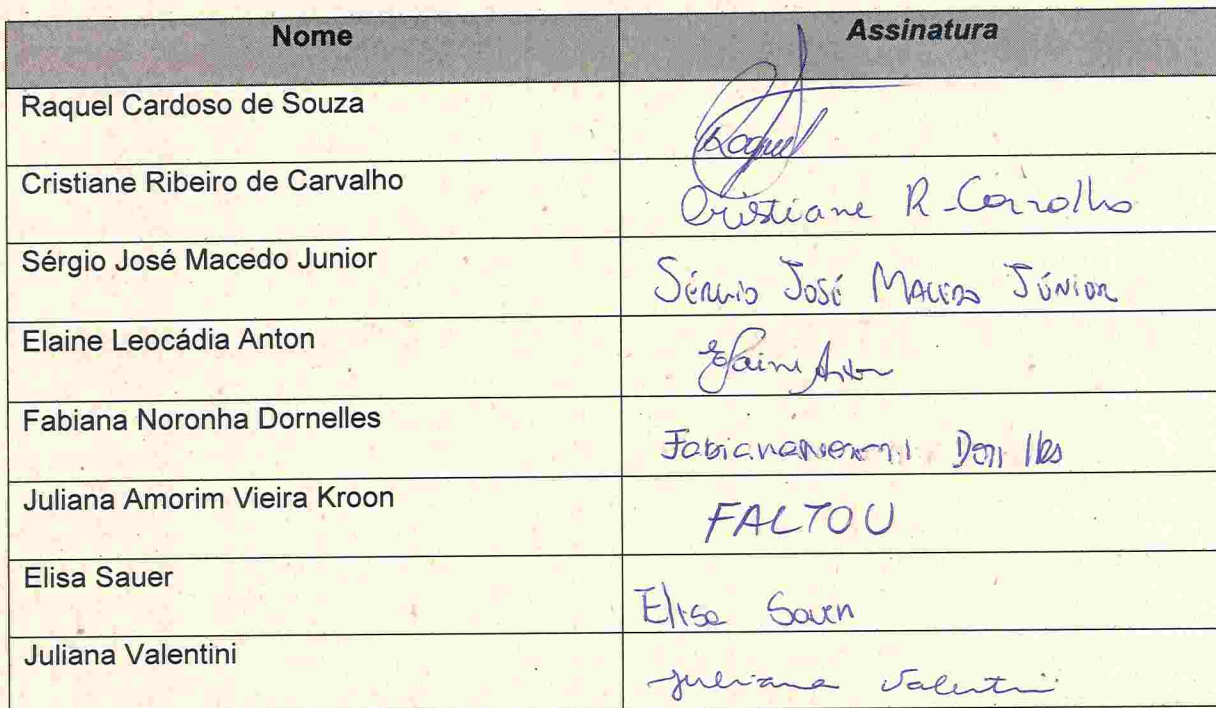 Nome Assinatura
Raquel Cardoso de Souza Raquel
Cristiane Ribeiro de Carvalho Cristiane R. Carvalho
Sérgio José Macedo Junior Sérgio José Macedo Júnior
Elaine Leocádia Anton Elaine Anton
Fabiana Noronha Dornelles Fabiana
Juliana Amorim Vieira Kroon FALTOU
Elisa Sauer Elisa Sauer
Juliana Valentini Juliana Valentini